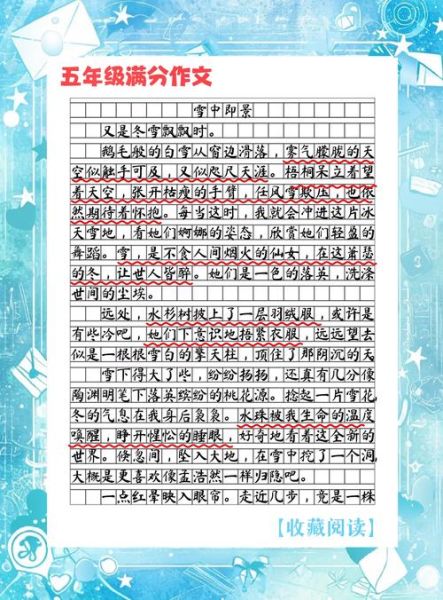 五年级满分作文
雪中即景
又是冬雪飘飘时。
鹅毛般的白雪从窗边滑落，雾气朦胧的天
空似触手可及，又似咫尺天涯。梧桐呆立着望
着天空，张开枯瘦的手臂，任风雪欺压，也依
然期待着怀抱。每当这时，我就会冲进这片冰
天雪地，看她们婀娜的姿态，欣赏她们轻盈的
舞蹈。雪，是不食人间烟火的仙女，在这萧瑟
的冬，让世人皆醉。她们是一色的落英，洗涤
世间的尘埃。
远处，水杉树披上了一层羽绒服，或许是
有些冷吧，她们下意识地捂紧衣服，远远望去
似是一根根雪白的擎天柱，顶住了那阴沉的天
雪下得大了些，纷纷扬扬，还真有几分像
陶渊明笔下落英缤纷的桃花源。捻起一片雪花
冬的气息在我身后袅袅。水珠被我生命的温度
唤醒，睁开惺忪的睡眼，好奇地看着这全新的
世界。倏忽间，坠入大地，在雪中挖了一个洞
大概是更喜欢像孟浩然一样归隐吧。
一点红晕映入眼帘。走近几步，竟是一株
【收藏阅读】